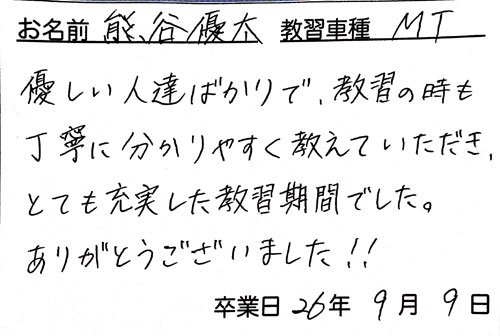 お名前 熊谷優太 教習車種 MT
優しい人達ばかりで、教習の時も
丁寧に分かりやすく教えていただき、
とても充実した教習期間でした。
ありがとうございました!!
卒業日 26年 9月 9日